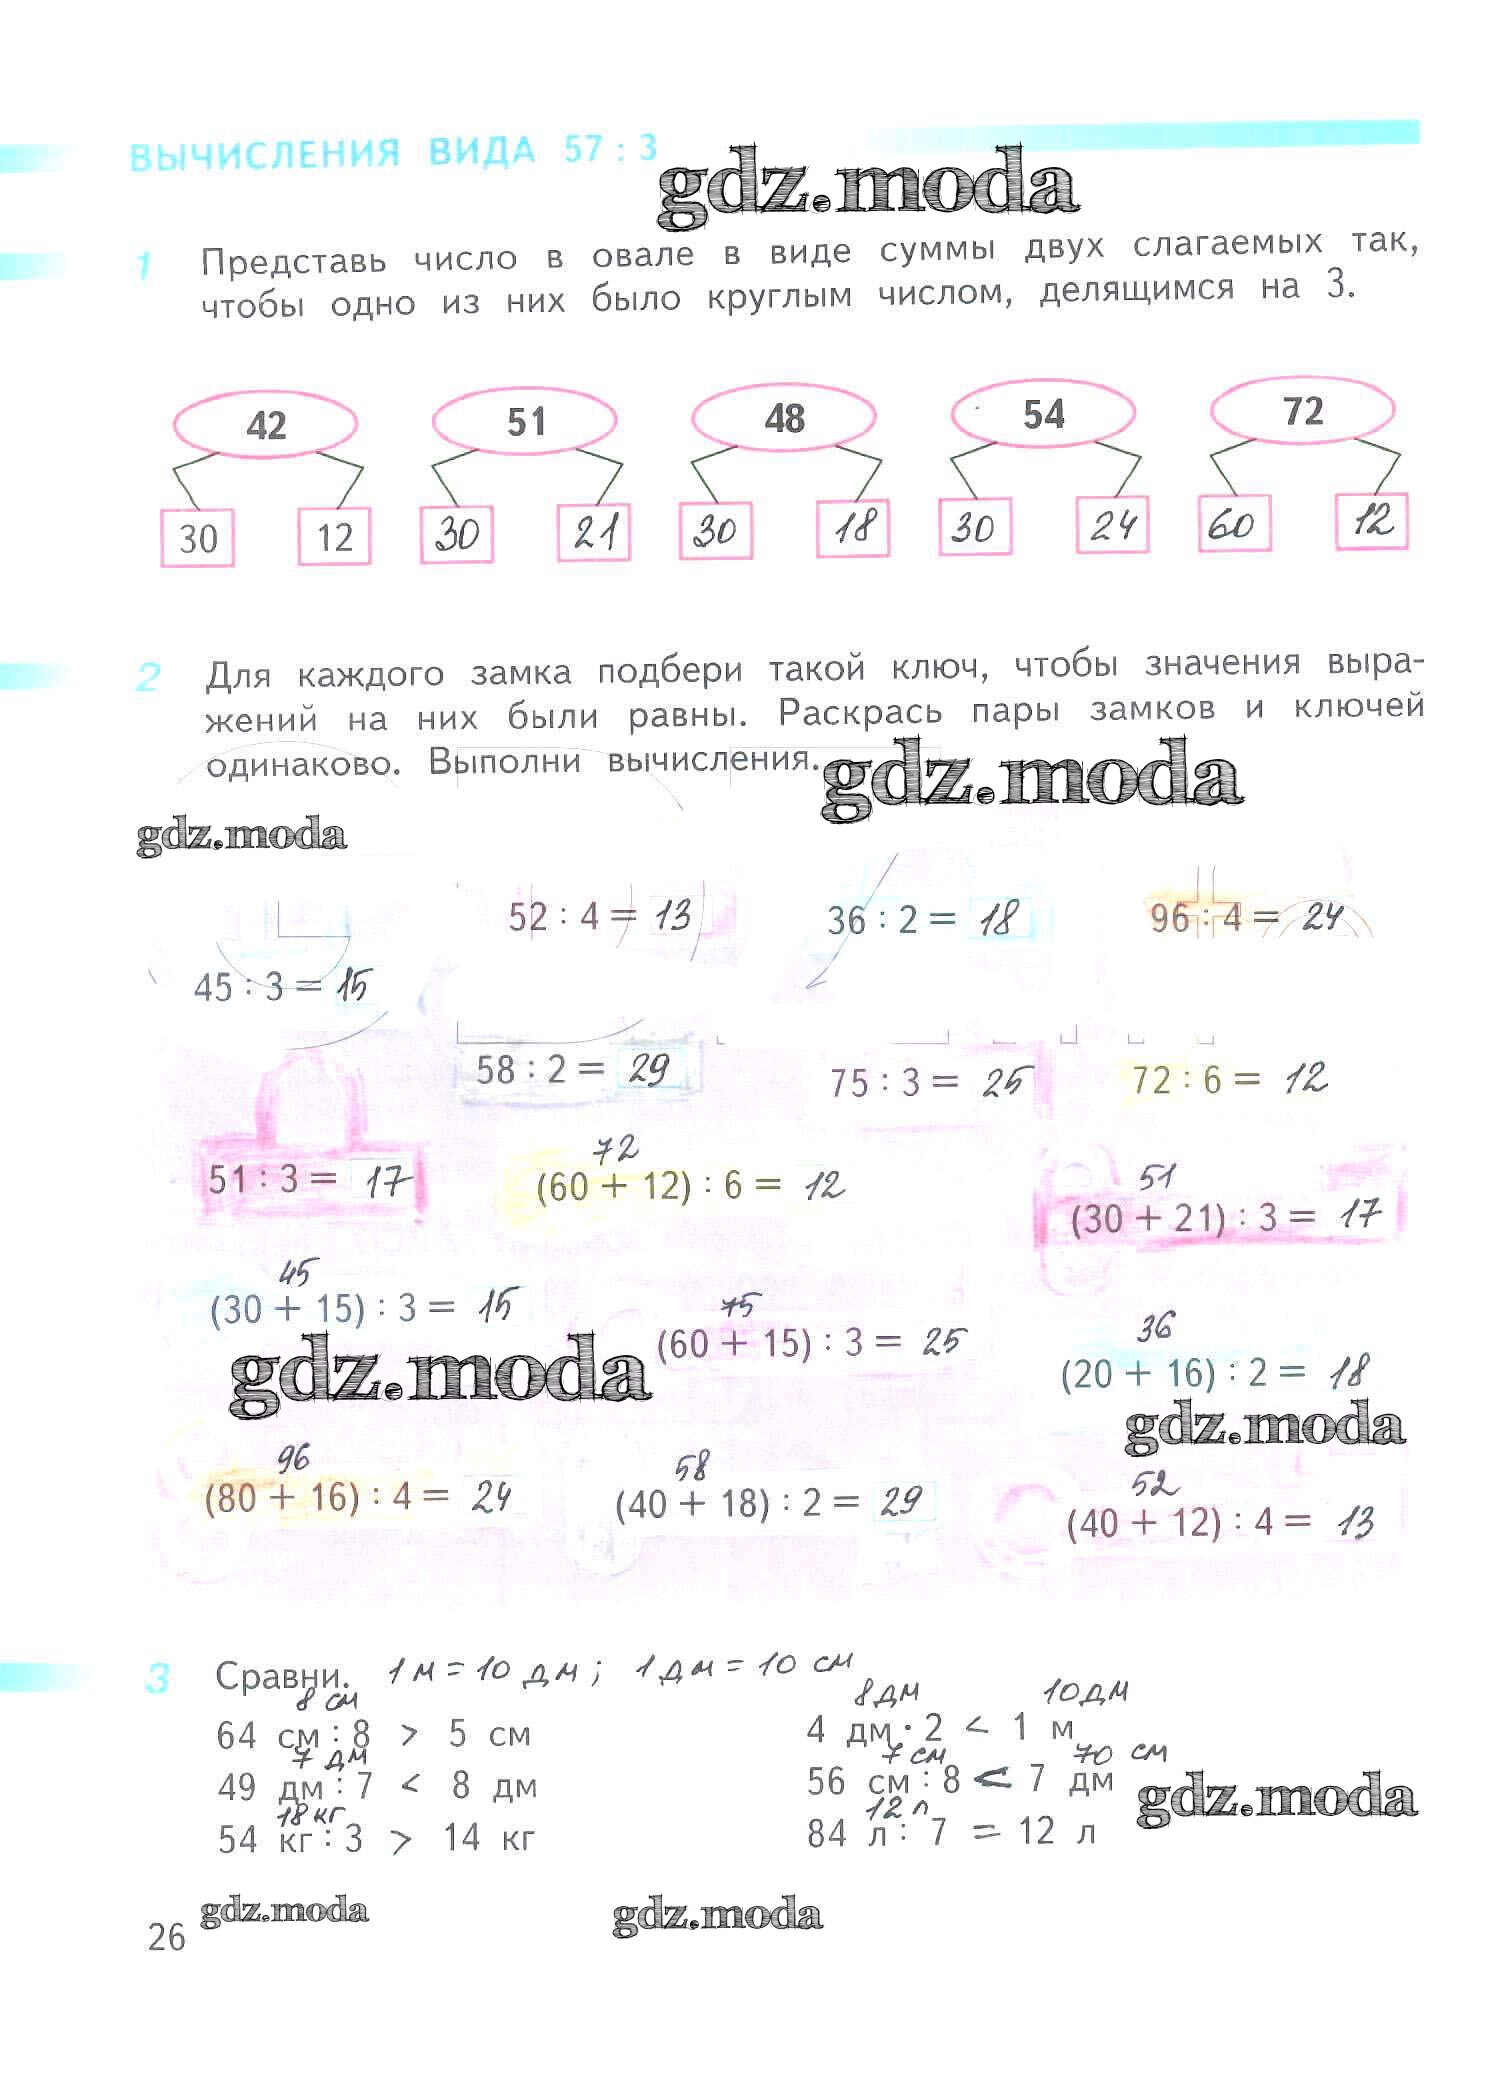 ВЫЧИСЛЕНИЯ ВИДА 57 : 3
gdz.moda
1 Представь число в овале в виде суммы двух слагаемых так,
чтобы одно из них было круглым числом, делящимся на 3.
42 51 48 54 72
30 12 30 21 30 18 30 24 60 12
2 Для каждого замка подбери такой ключ, чтобы значения выра-
жений на них были равны. Раскрась пары замков и ключей
одинаково. Выполни вычисления.
gdz.moda
gdz.moda
52 : 4 = 13 36 : 2 = 18 96 : 4 = 24
45 : 3 = 15
58 : 2 = 29 75 : 3 = 25 72 : 6 = 12
72
51
51 : 3 = 17 (60 + 12) : 6 = 12 (30 + 21) : 3 = 17
45
75
36
(30 + 15) : 3 = 15 (60 + 15) : 3 = 25 (20 + 16) : 2 = 18
gdz.moda
gdz.moda
96
58
52
(80 + 16) : 4 = 24 (40 + 18) : 2 = 29 (40 + 12) : 4 = 13
3 Сравни. 1 м = 10 дм ; 1 дм = 10 см
8 см 8 дм 10 дм
64 см : 8 > 5 см 4 дм · 2 < 1 м
7 дм 7 см 70 см
49 дм : 7 < 8 дм 56 см : 8 < 7 дм
gdz.moda
18 кг 12 л
54 кг : 3 > 14 кг 84 л : 7 = 12 л
26 gdz.moda gdz.moda